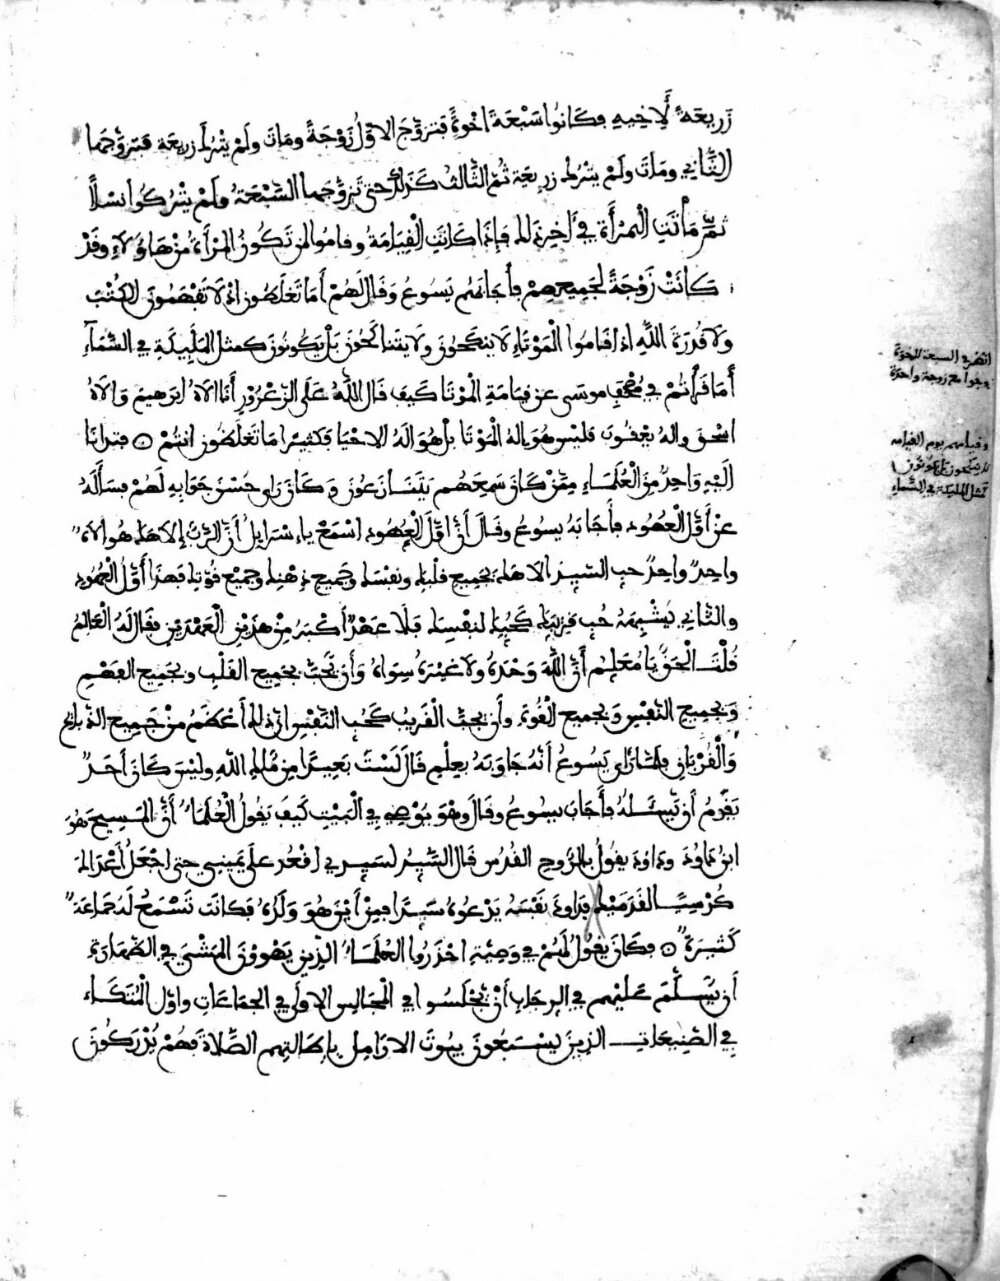 زريعة لأخيه فكانوا سبعة اخوة فتزوج الاول زوجة ومات ولم يترك زريعة فتزوجها
الثاني ومات ولم يترك زريعة ثم الثالث كذلك حتى تزوجها السبعة ولم يتركوا نسلا
ثم ماتت المرأة في اخر ذلك فإذا كانت القيامة وقاموا لمن تكون المرأة من هاولاء وقد
كانت زوجة لجميعهم فأجابهم يسوع وقال لهم أما تغلطون اذ لا تفهمون الكتب
ولا قدرة الله اذ اقاموا الموتا لا ينكحون ولا يتناكحون بل يكونون كمثل المليكة في السماء
أما قرأتم في مصحف موسى عن قيامة الموتا كيف قال الله على الزعرور أنا الاه ابرهيم والاه
اسحق واله يعقوب فليس هو باله الموتا بل هو اله الاحيا فكثيرا ما تغلطون انتم فدانا
اليه واحد من العلماء ممن كان سمعهم يتنازعون وكان رلى حسن جوابه لهم فسأله
عن أول العهود فأجابه يسوع وقال أن اول العهود اسمع يا إسرايل أن الرب إلاهك هو الاه
واحد واحد حب السيد الاهك بجميع قلبك ونفسك وجميع ذهنك وجميع قوتك فهذا أول العهود
والثاني يشبهه حب قريبك كحبك لنفسك فلا عهد أكبر من هذين العهدين فقال له العالم
قلت الحق يا معلم أن الله وحده ولا غيره سواه وأن تحب بجميع القلب وبجميع الفهم
وبجميع النفس وبجميع القوة وأن يحب القريب كحب النفس ان ذلك أعظم من جميع الذبايح
والقربان فلما رأى يسوع أنه جاوبه بعلم قال لست بعيدا من ملك الله وليس كان أحد
يقدم أن يسئله فأجاب يسوع وقال وهو يوصي في البيت كيف يقول العلماء أن المسيح هو
ابن داوود وداود يقول بالروح القدس قال السيد لسيدي اقعد على يميني حتى اجعل أعداك
كرسي القدميك فداود نفسه يدعوه سيدا فمن أين هو ولده فكانت تسمع له جماعة
كثيرة فكان يقول لهم في وصيته احذروا العلماء الذين يهوون المشي في
أن يسلم عليهم في الرحاب أن يجلسوا في المجالس الاولى في الجماعات واول المتكاء
في الصنيعات الذين يستبعون بيوت الارامل بإطالتهم الصلاة فهم يدركون
انظر في السبعة الاخوة
زوجوا مع زوجة واحدة
وقيامهم يوم القيامة
لا ينكحون بل يكونون
كمثل المليكة في السماء